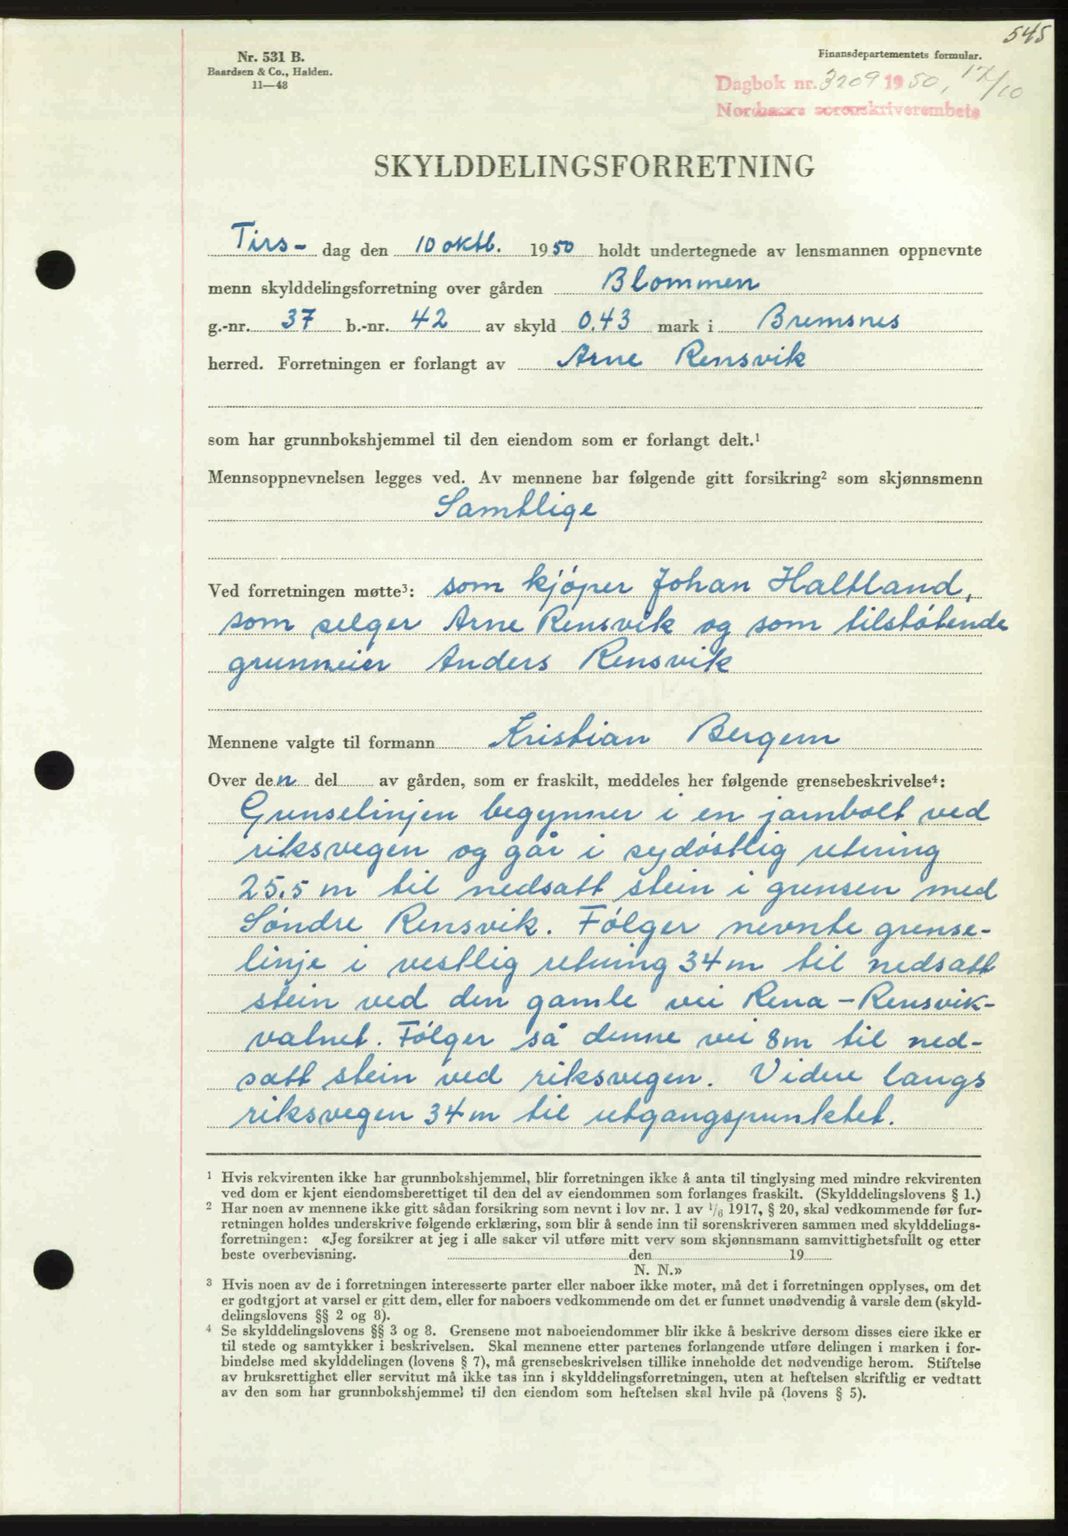 545
Nr. 531 B.
Baardsen & Co., Halden.
11—48
Finansdepartementets formular.
Dagbok nr. 3209 1950, 17/10
Nordmøre sorenskriverembete
SKYLDDELINGSFORRETNING
Tirs- dag den 10 oktb. 1950 holdt undertegnede av lensmannen oppnevnte
menn skylddelingsforretning over gården Blommen
g.-nr. 37 b.-nr. 42 av skyld 0.43 mark i Bremsnes
herred. Forretningen er forlangt av Arne Rensvik
som har grunnbokshjemmel til den eiendom som er forlangt delt.¹
Mennsoppnevnelsen legges ved. Av mennene har følgende gitt forsikring² som skjønnsmenn
Samtlige
Ved forretningen møtte³: som kjøper Johan Haltland,
som selger Arne Rensvik og som tilstøtende
grunneier Anders Rensvik
Mennene valgte til formann Kristian Bergem
Over den del av gården, som er fraskilt, meddeles her følgende grensebeskrivelse⁴:
Grenselinjen begynner i en jarnbolt ved
riksvegen og går i sydøstlig retning
25.5 m til nedsatt stein i grensen med
Søndre Rensvik. Følger nevnte grense-
linje i vestlig retning 34 m til nedsatt
stein ved den gamle vei Rena - Rensvik-
vatnet. Følger så denne vei 8m til ned-
satt stein ved riksvegen. Videre langs
riksvegen 34 m til utgangspunktet.
¹ Hvis rekvirenten ikke har grunnbokshjemmel, blir forretningen ikke å anta til tinglysing med mindre rekvirenten
ved dom er kjent eiendomsberettiget til den del av eiendommen som forlanges fraskilt. (Skylddelingslovens § 1.)
² Har noen av mennene ikke gitt sådan forsikring som nevnt i lov nr. 1 av 1/6 1917, § 20, skal vedkommende før for-
retningen holdes underskrive følgende erklæring, som blir å sende inn til sorenskriveren sammen med skylddelings-
forretningen: «Jeg forsikrer at jeg i alle saker vil utføre mitt verv som skjønnsmann samvittighetsfullt og etter
beste overbevisning. den 19
N. N.»
³ Hvis noen av de i forretningen interesserte parter eller naboer ikke møter, må det i forretningen opplyses, om det
er godtgjort at varsel er gitt dem, eller for naboers vedkommende om det er funnet unødvendig å varsle dem (skyld-
delingslovens §§ 2 og 8).
⁴ Se skylddelingslovens §§ 3 og 8. Grensene mot naboeiendommer blir ikke å beskrive dersom disses eiere ikke er
til stede og samtykker i beskrivelsen. Skal mennene etter partenes forlangende utføre delingen i marken i for-
bindelse med skylddelingen (lovens § 7), må grensebeskrivelsen tillike inneholde det nødvendige herom. Stiftelse
av bruksrettighet eller servitut må ikke tas inn i skylddelingsforretningen, uten at heftelsen skriftlig er vedtatt
av den som har grunnbokshjemmel til den eiendom som heftelsen skal hvile på (lovens § 5).